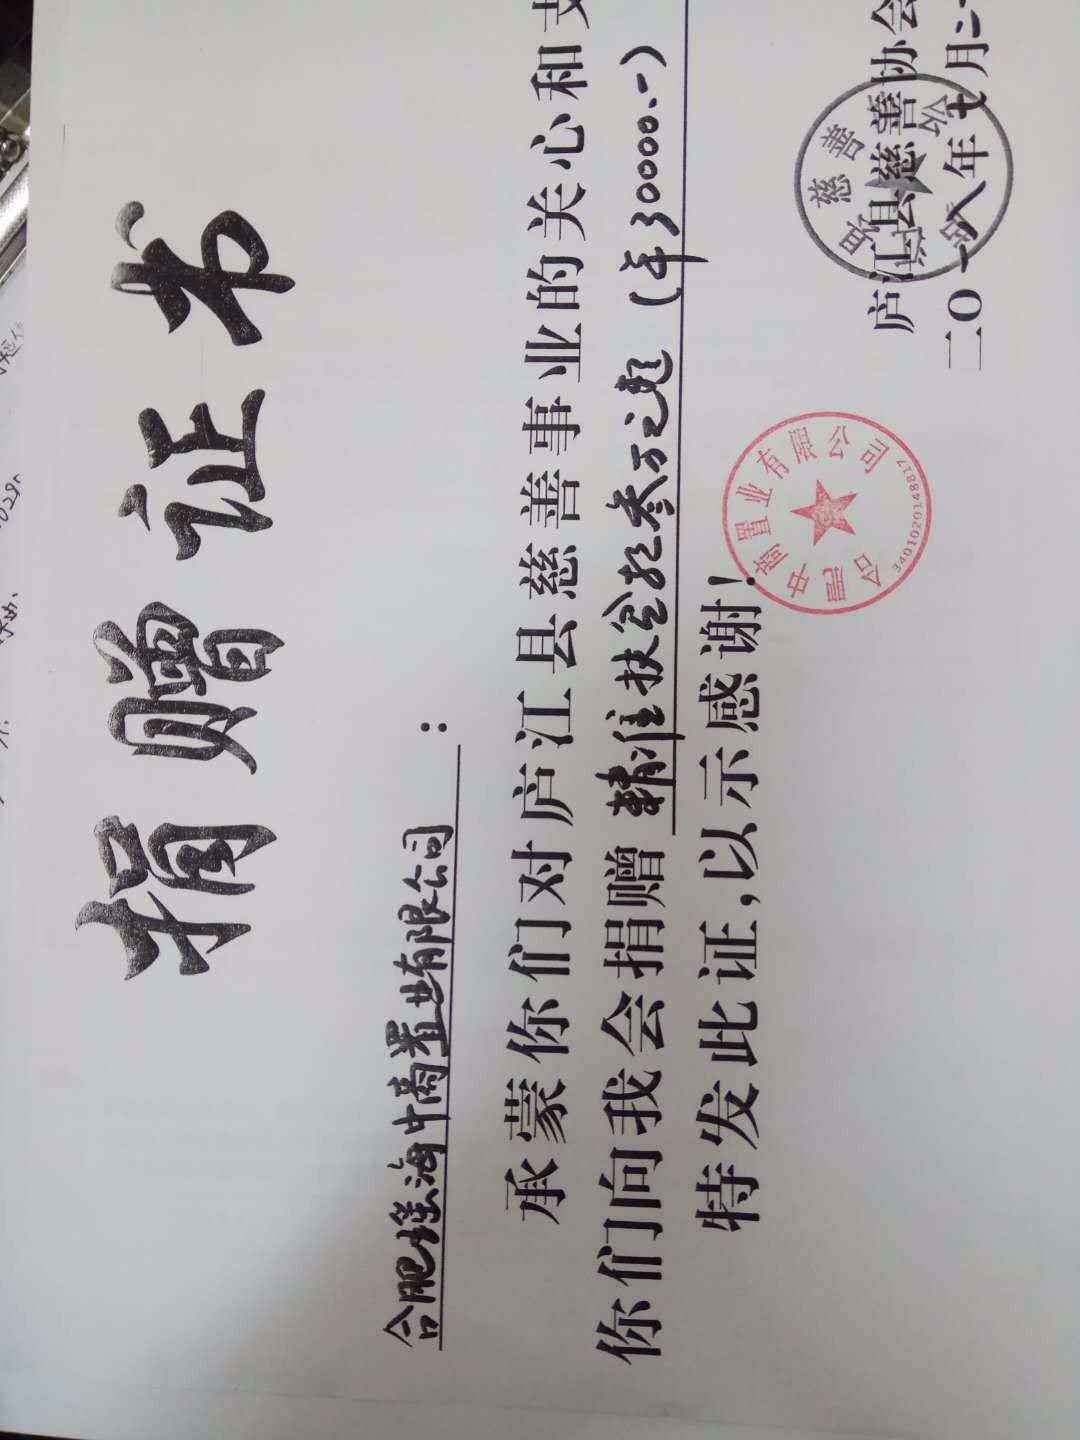 捐赠证书
合肥瑶海中商置业有限公司：
承蒙你们对庐江县慈善事业的关心和支
你们向我会捐赠精准扶贫款叁万元整（￥30000.-）
特发此证，以示感谢！
合肥中商置业有限公司
3401020148817
庐江县慈善协会
二〇一八年七月二